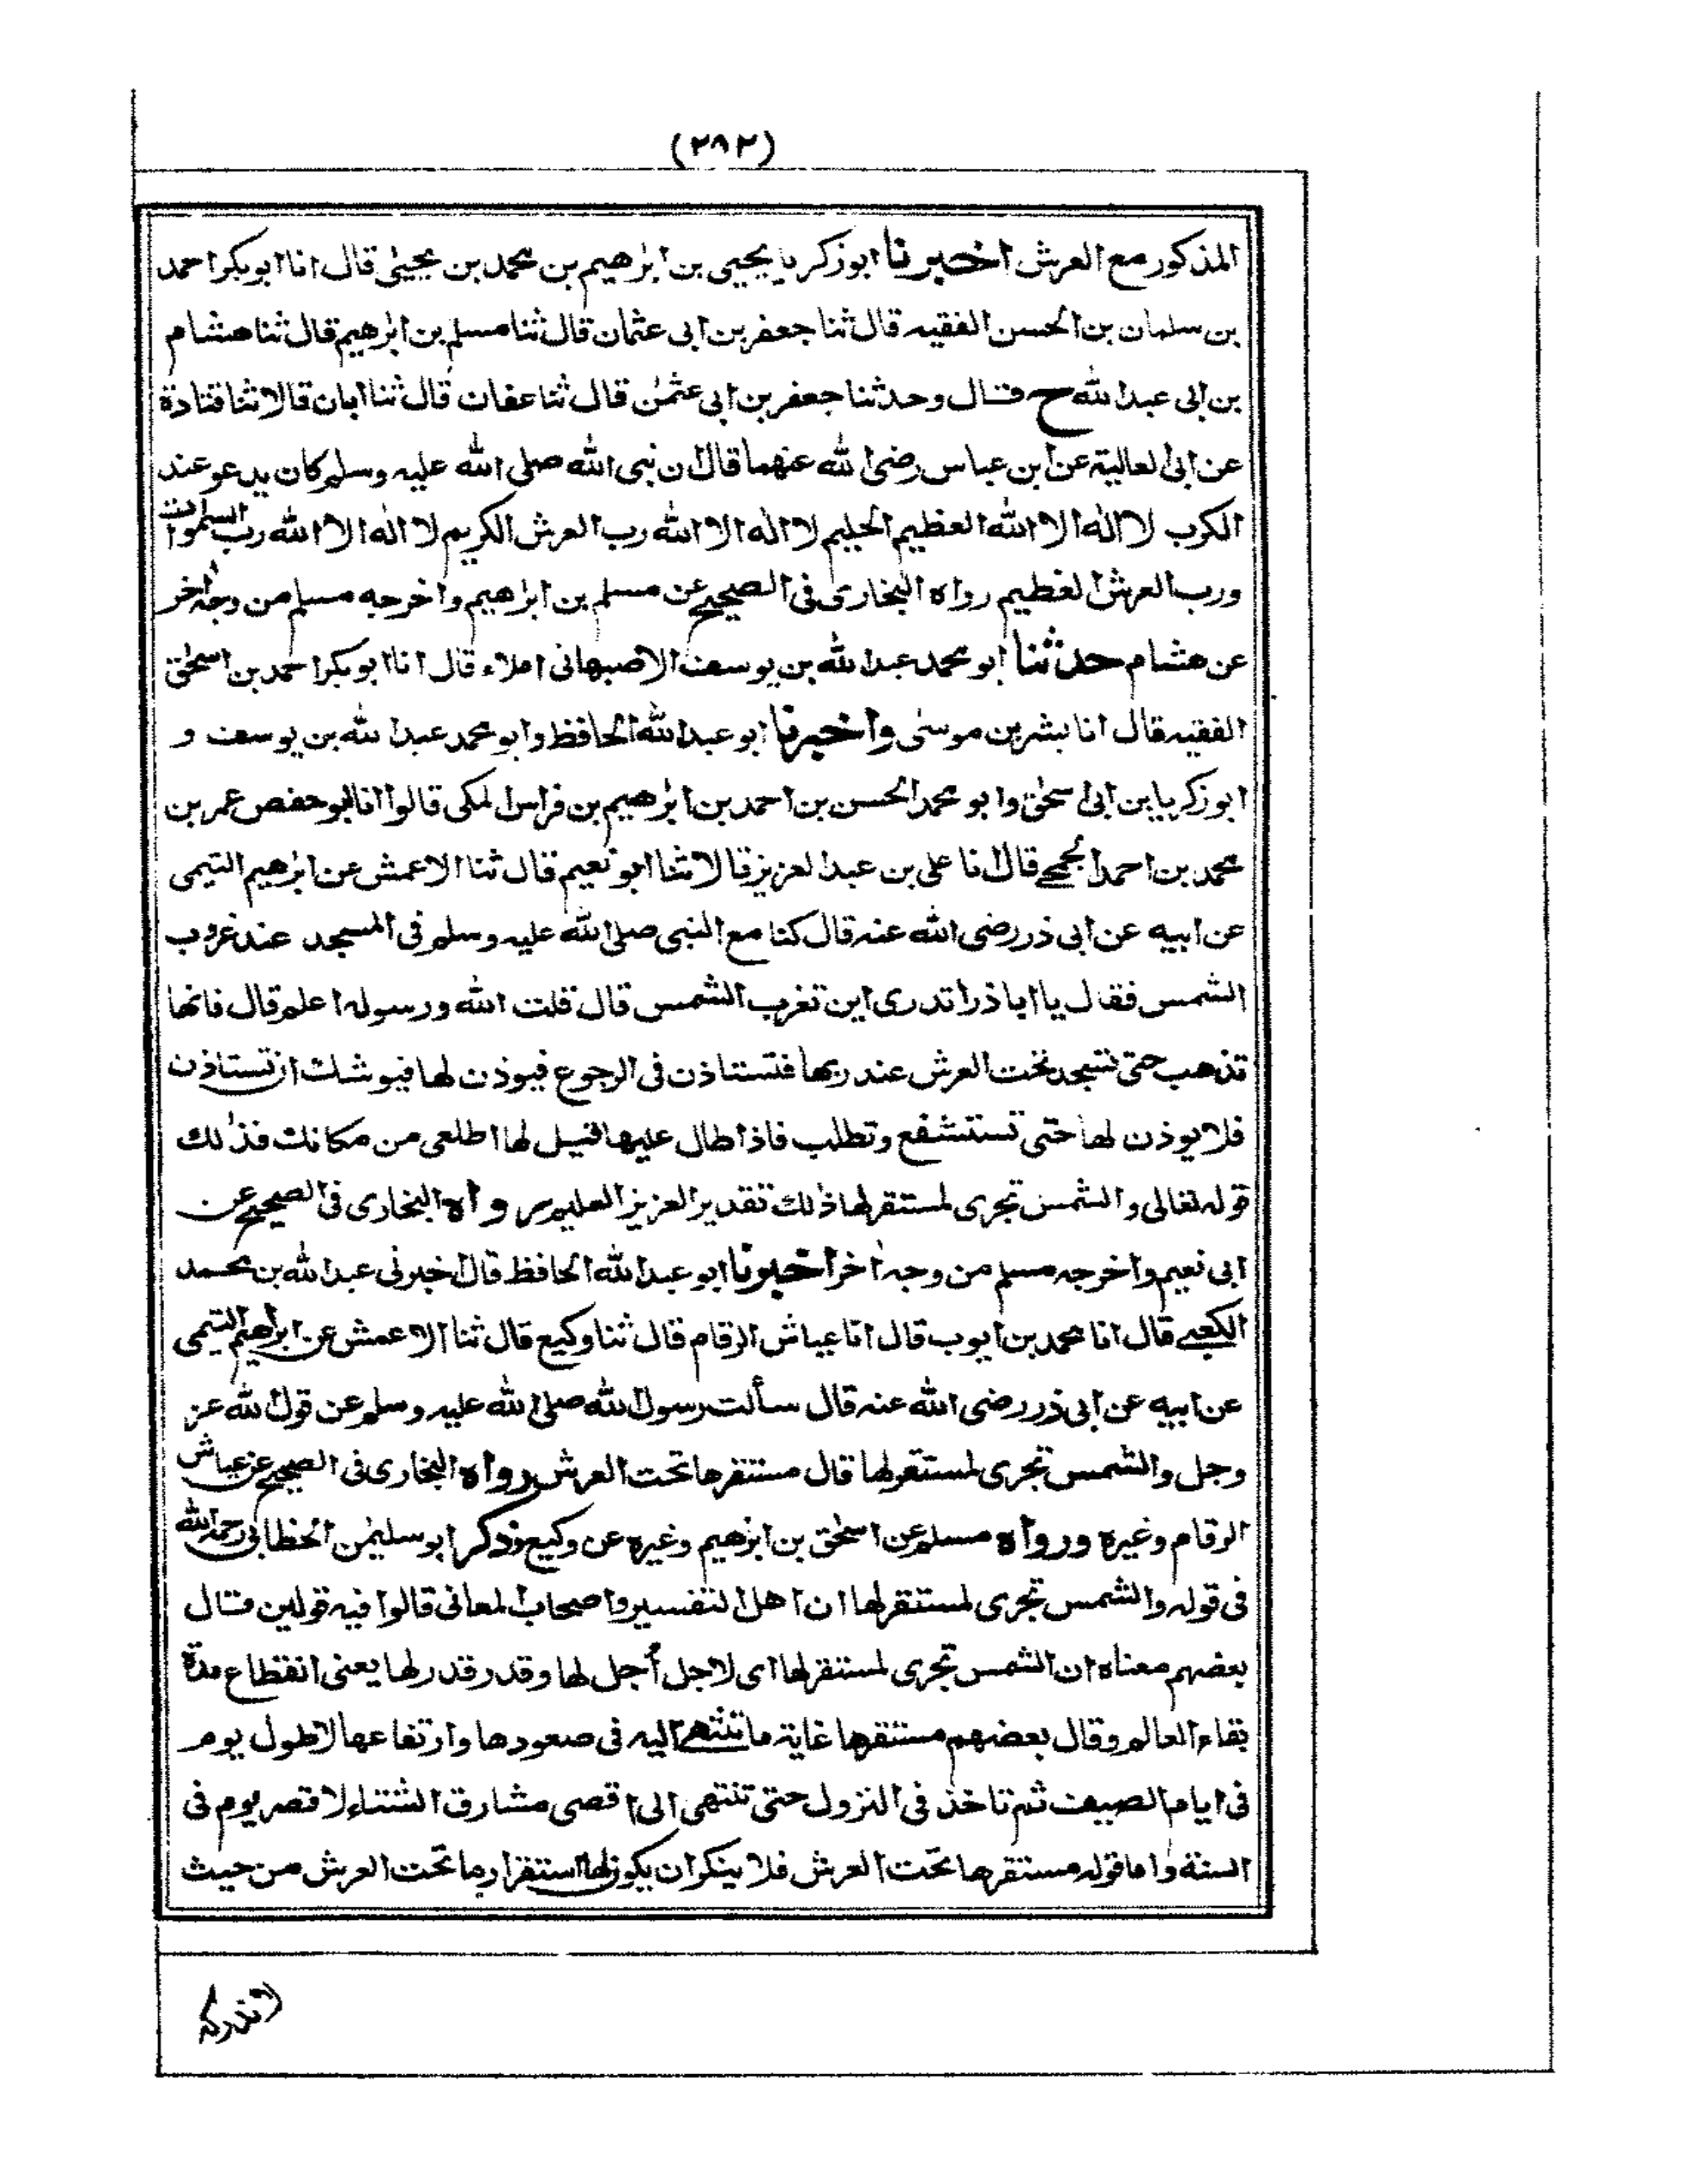 (٢٨٢)
المذكور مع العرش اخبرنا ابو زكريا يحيى بن ابرٰهيم بن محمد بن يحيىٰ قال انا ابو بكر احمد
بن سلمان بن الحسن الفقيه قال ثنا جعفر بن ابى عثمان قال ثنا مسلم بن ابرٰهيم قال ثنا هشام
بن ابى عبد الله ح قال وحدثنا جعفر بن ابى عثمٰن قال ثنا عفان قال ثنا ابان قالا ثنا قتادة
عن ابى العالية عن ابن عباس رضى الله عنهما قال ان نبى الله صلى الله عليه وسلم كان يدعو عند
الكرب لا اله الا الله العظيم الحليم لا اله الا الله رب العرش الكريم لا اله الا الله رب السموات
ورب العرش العظيم رواه البخارى فى الصحيح عن مسلم بن ابرٰهيم واخرجه مسلم من وجه اٰخر
عن هشام حدثنا ابو محمد عبد الله بن يوسف الاصبهانى املاء قال انا ابو بكر احمد بن اسحٰق
الفقيه قال انا بشر بن موسىٰ واخبرنا ابو عبد الله الحافظ وابو محمد عبد الله بن يوسف و
ابو زكريا بن ابى اسحٰق وابو محمد الحسن بن احمد بن ابرٰهيم بن فراس المكى قالوا انا ابو حفص عمر بن
محمد بن احمد الجمحے قال انا على بن عبد العزيز قالا ثنا ابو نعيم قال ثنا الاعمش عن ابرٰهيم التيمى
عن ابيه عن ابى ذر رضى الله عنه قال كنا مع النبى صلى الله عليه وسلم فى المسجد عند غروب
الشمس فقال يا ابا ذر اتدرى اين تغرب الشمس قال قلت الله ورسوله اعلم قال فانها
تذهب حتى تسجد تحت العرش عند ربها فتستاذن فى الرجوع فيوذن لها فيوشك ان تستاذن
فلا يوذن لها حتى تستشفع وتطلب فاذا طال عليها قيل لها اطلعى من مكانك فذٰلك
قوله تعالى والشمس تجرى لمستقر لها ذٰلك تقدير العزيز العليم رواه البخارى فى الصحيح عن
ابى نعيم واخرجه مسلم من وجه اٰخر اخبرنا ابو عبد الله الحافظ قال اخبرنى عبد الله بن محمد
الكعبے قال انا محمد بن ايوب قال انا عياش الرقام قال ثنا وكيع قال ثنا الاعمش عن ابراهيم التيمى
عن ابيه عن ابى ذر رضى الله عنه قال سألت رسول الله صلى الله عليه وسلم عن قول الله عز
وجل والشمس تجرى لمستقر لها قال مستقرها تحت العرش رواه البخارى فى الصحيح عن عياش
الرقام وغيره ورواه مسلم عن اسحٰق بن ابرٰهيم وغيره عن وكيع وذكر ابو سليمٰن الخطابى رحمه الله
فى قوله والشمس تجرى لمستقر لها ان اهل التفسير واصحاب المعانى قالوا فيه قولين قال
بعضهم معناه ان الشمس تجرى لمستقر لها اى لاجل أُجل لها وقدر قدر لها يعنى انقطاع مدة
بقاء العالم وقال بعضهم مستقرها غاية ما تنتهے اليه فى صعودها وارتفاعها لاطول يوم
فى ايام الصيف ثم تاخذ فى النزول حتى تنتهى الى اقصى مشارق الشتاء لاقصر يوم فى
السنة واما قوله مستقرها تحت العرش فلا ينكر ان يكون لها استقرار ما تحت العرش من حيث
لاندركه